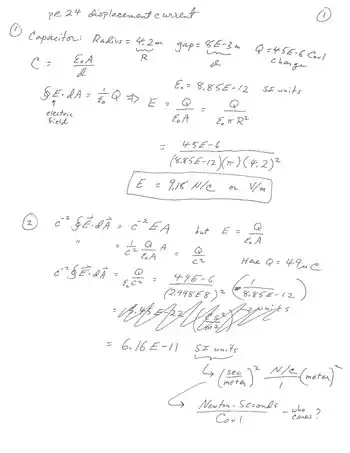 pe 24 displacement current
①
① Capacitor: Radius = 4.2m gap = 8E-3m Q = 45E-6 Coul
R d charge
C = ε₀A / d
ε₀ = 8.85E-12 SI units
∮E·dA = 1/ε₀ Q ⇒ E = Q / ε₀A = Q / ε₀πR²
electric field
= 45E-6 / (8.85E-12)(π)(4.2)²
E = 9.18 N/C or V/m
② c⁻² ∮E⃗·dA⃗ = c⁻² E A but E = Q / ε₀A
" = 1/c² Q/ε₀A A = Q / c² Here Q = 49μC
c⁻² ∮E⃗·dA⃗ = Q / ε₀c² = 49E-6 / (2.998E8)² (1 / 8.85E-12)
= 6.16E-11 SI units
↳ (sec / meter)² N/C / 1 (meter)²
↳ Newton-Seconds / Coul - who cares?